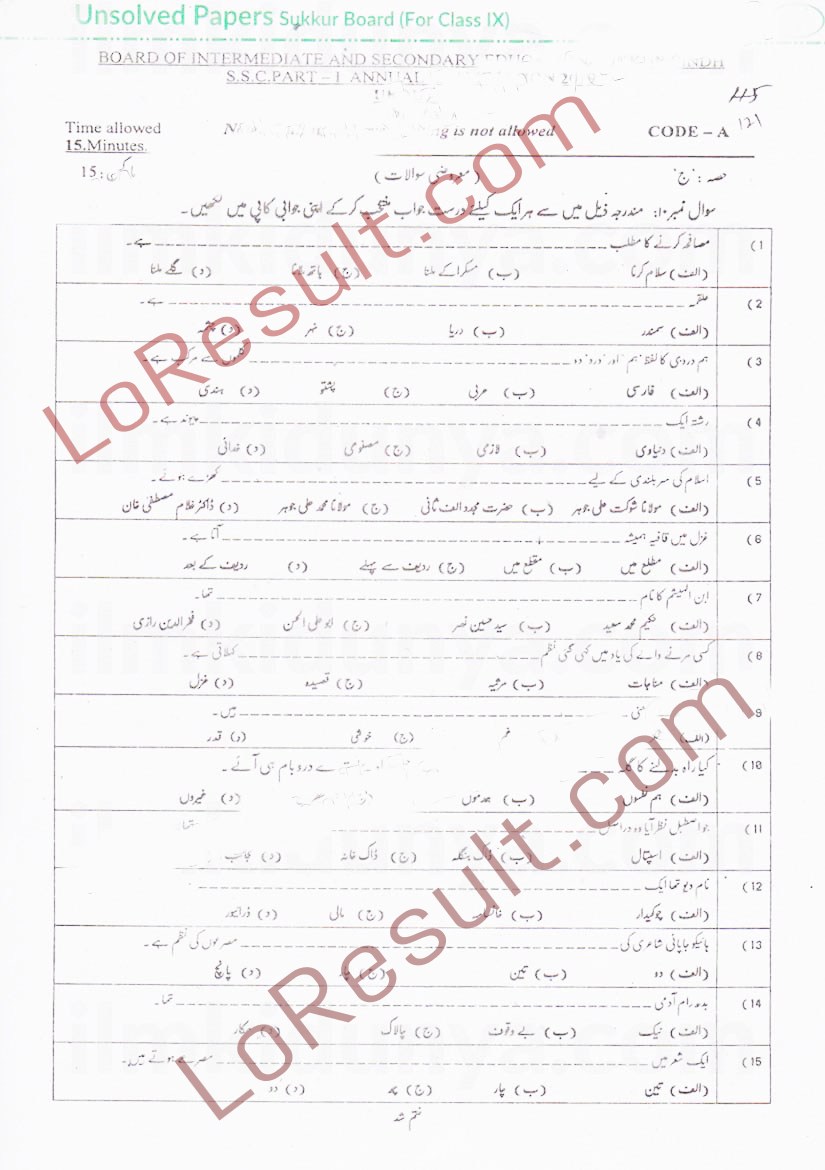 Unsolved Papers Sukkur Board (For Class IX)
BOARD OF INTERMEDIATE AND SECONDARY
S.S.C.PART – I ANNUAL
115
121
Time allowed is not allowed CODE – A
15.Minutes.
حصہ : "ج" (معروضی سوالات) مارکس: 15
سوال نمبر ۱۰: مندرجہ ذیل میں سے ہر ایک کیلئے درست جواب منتخب کرکے اپنی جوابی کاپی میں لکھیں۔
(1 مصافحہ کرنے کا مطلب ــــــــ ہے۔
(الف) سلام کرنا (ب) مسکرا کے ملنا (ج) ہاتھ ملانا (د) گلے ملنا
(2 ــــــــ ہے۔
(الف) سمندر (ب) دریا (ج) نہر (د) چشمہ
(3 ہم دردی کا لفظ "ہم" اور "درد" دو ــــــــ لفظوں سے مرکب ہے۔
(الف) فارسی (ب) عربی (ج) پشتو (د) ہندی
(4 رشتہ ایک ــــــــ پیوند ہے۔
(الف) دنیاوی (ب) لازمی (ج) مصنوعی (د) خدائی
(5 اسلام کی سربلندی کے لیے ــــــــ کھڑے ہوئے۔
(الف) مولانا شوکت علی جوہر (ب) حضرت مجدد الف ثانی (ج) مولانا محمد علی جوہر (د) ڈاکٹر غلام مصطفیٰ خان
(6 غزل میں قافیہ ہمیشہ ــــــــ آتا ہے۔
(الف) مطلع میں (ب) مقطع میں (ج) ردیف سے پہلے (د) ردیف کے بعد
(7 ابن الہیثم کا نام ــــــــ تھا۔
(الف) حکیم محمد سعید (ب) سید حسین نصر (ج) ابو علی الحسن (د) فخر الدین رازی
(8 کسی مرنے والے کی یاد میں لکھی گئی نظم ــــــــ کہلاتی ہے۔
(الف) مناجات (ب) مرثیہ (ج) قصیدہ (د) غزل
9 ــــــــ ہیں۔
(الف) (ب) غم (ج) خوشی (د) قدر
(10 کیا راہ بدلنے کا گلہ ــــــــ سے درو بام ہی آئے۔
(الف) ہم نفسوں (ب) ہمدموں (د) غیروں
(11 جو اصطبل نظر آیا وہ دراصل ــــــــ تھا
(الف) اسپتال (ب) ڈاک بنگلہ (ج) ڈاک خانہ (د)
(12 نام دیو تھا ایک ــــــــ
(الف) چوکیدار (ب) (ج) مالی (د) ڈرائیور
(13 ہائیکو جاپانی شاعری کی ــــــــ مصرعوں کی نظم ہے۔
(الف) دو (ب) تین (ج) چار (د) پانچ
(14 بدھ رام آدمی ــــــــ تھا۔
(الف) نیک (ب) بے وقوف (ج) چالاک (د) مکار
(15 ایک شعر میں ــــــــ مصرعے ہوتے ہیں۔
(الف) تین (ب) چار (ج) چھ (د) دو
ختم شد
LoResult.com
LoResult.com